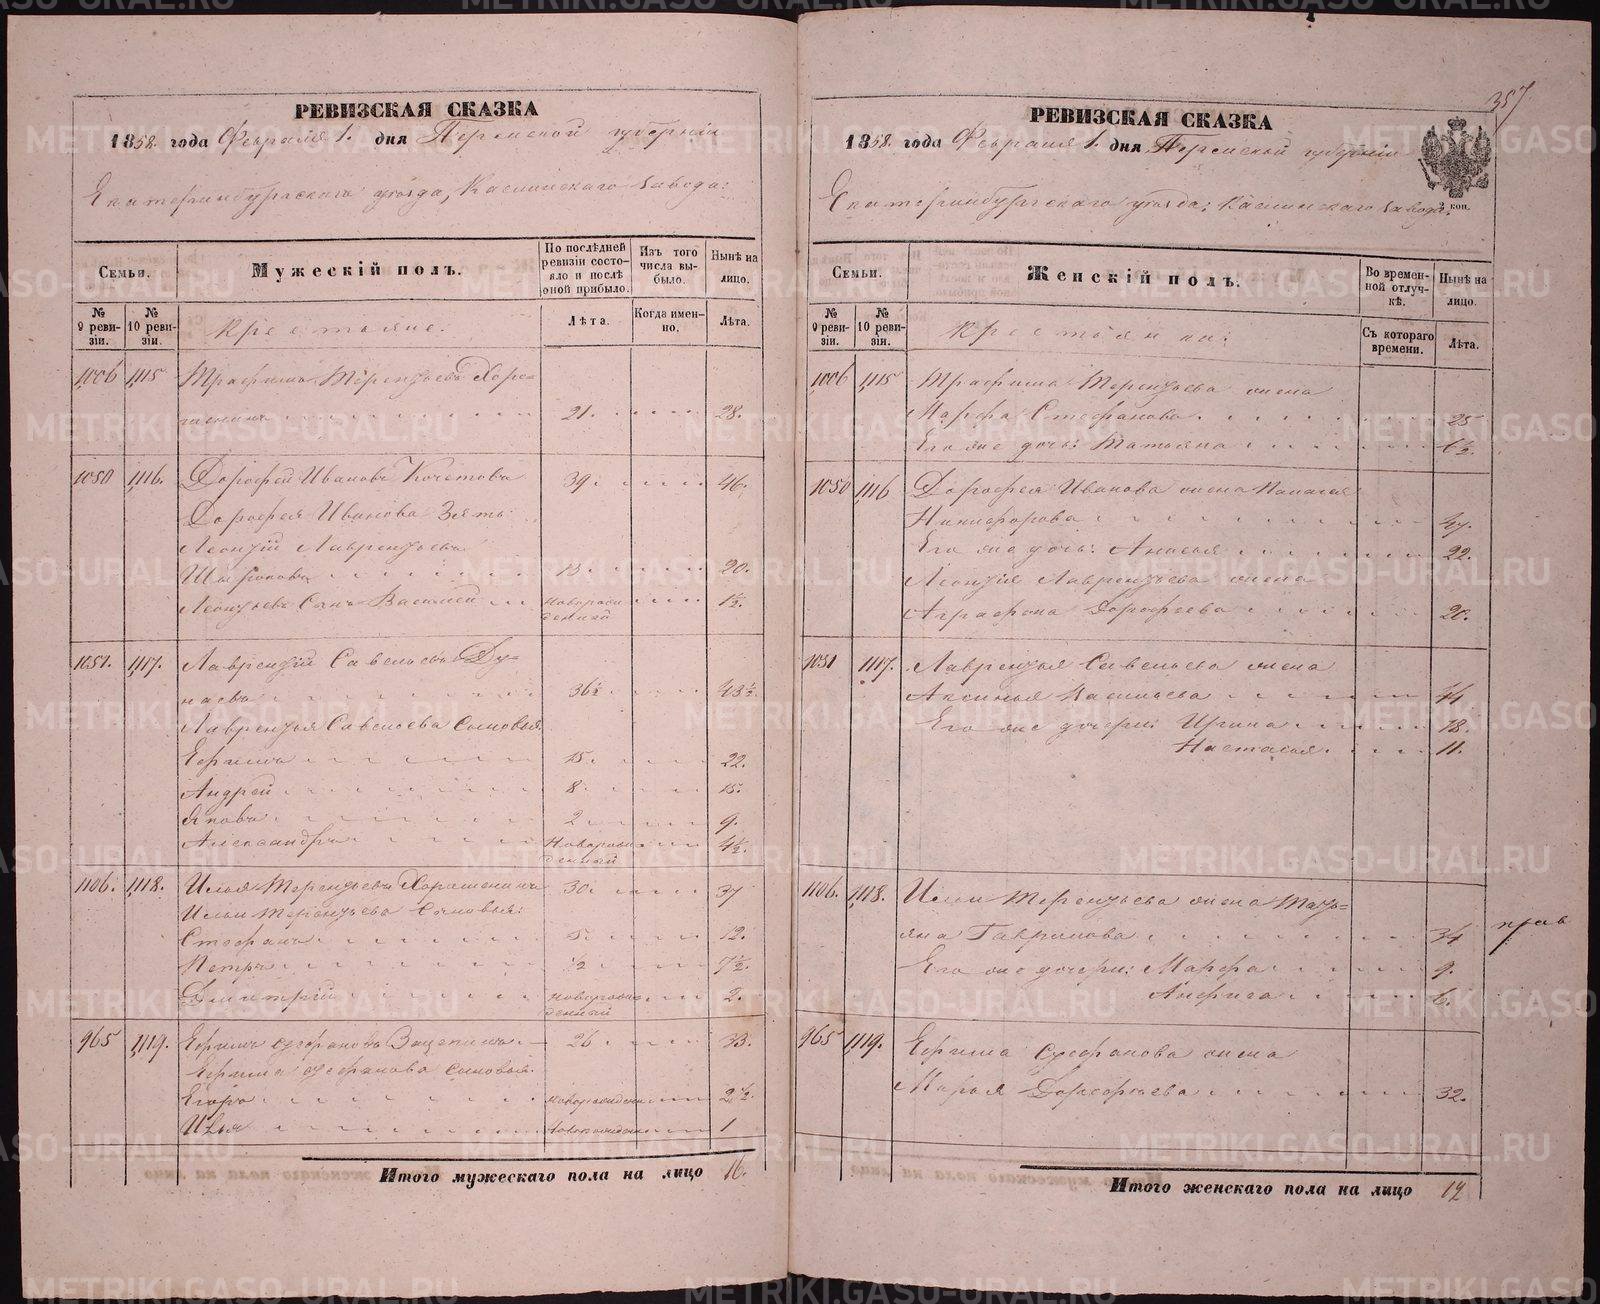 РЕВИЗСКАЯ СКАЗКА
1858. года Февраля 1. дня Пермской губерніи
Екатеринбургскаго уѣзда, Каслинскаго завода:
Семьи.
Мужескій полъ.
По послѣдней ревизіи состояло и послѣ оной прибыло.
Изъ того числа выбыло.
Нынѣ на лицо.
№ 9 ревизіи.
№ 10 ревизіи.
Крестьяне.
Лѣта.
Когда именно.
Лѣта.
1006 1115 Трафимъ Терентьевъ Хоро=
шенинъ 21. 28.
1050 1116. Дорофей Ивановъ Кочетовъ 39. 46.
Дорофея Иванова Зять
Леонтій Лаврентьевъ
13. 20.
Леонтьевъ Сынъ Василей новорожденный 1½.
1051. 1117. Лаврентій Савельевъ Ду=
наевъ 36½ 43½.
Лаврентья Савельева сыновья
Ефимъ 15. 22.
Андрей 8. 15.
Яковъ 2. 9.
Александръ Новорожденный 4½.
1106. 1118. Илья Терентьевъ Хорошенинъ 30. 37
Ильи Терентьева Сыновья:
Стефанъ 5. 12.
Петръ ½ 7½.
Дмитрій новорожденный 2.
965 1119. Ефимъ Зацепинъ 26 33.
Ефима сыновья
Егоръ новорожденн 2½.
Илья новорожденн 1
Итого мужескаго пола на лицо 16.
357
РЕВИЗСКАЯ СКАЗКА
1858. года Февраля 1. дня Пермской губерніи
Екатеринбургскаго уѣзда, Каслинскаго завода:
2 коп.
Семьи.
Женскій полъ.
Во временной отлучкѣ.
Нынѣ на лицо.
№ 9 ревизіи.
№ 10 ревизія.
Крестьянки:
Съ котораго времени.
Лѣта.
1006 1115 Трафима Терентьева жена
Марфа Стефанова 25
Его же дочь: Татьяна 6½.
1050 1116 Дорофея Иванова жена Палагея
Никифорова 47.
Его же дочь: Анисья 22.
Леонтія Лаврентьева жена
Аграфена Дорофеева 20.
1051 1117. Лаврентья Савельева жена
Аксинья Васильева 44.
Его же дочери: Ирина 18.
Настасья 11.
1106. 1118. Ильи Терентьева жена Тать=
яна Гаврилова 34
Его же дочери: Марфа 9.
Анфиса 6.
прав
965 1119. Ефима жена
Марья Дорофеева 32.
Итого женскаго пола на лицо 12